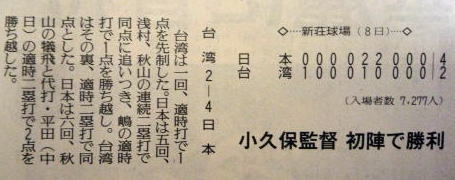 ◇…新荘球場（８日）…◇
日本 000 022 000|4
台湾 100 010 000|2
（入場者数 7,277人）
小久保監督 初陣で勝利
台湾２―４日本
台湾は一回、適時打で１
点を先制した。日本は五回、
浅村、秋山の連続二塁打で
同点に追いつき、嶋の適時
打で１点を勝ち越し。台湾
はその裏、適時二塁打で同
点とした。日本は六回、秋
山の犠飛と代打・平田（中
日）の適時二塁打で２点を
勝ち越した。